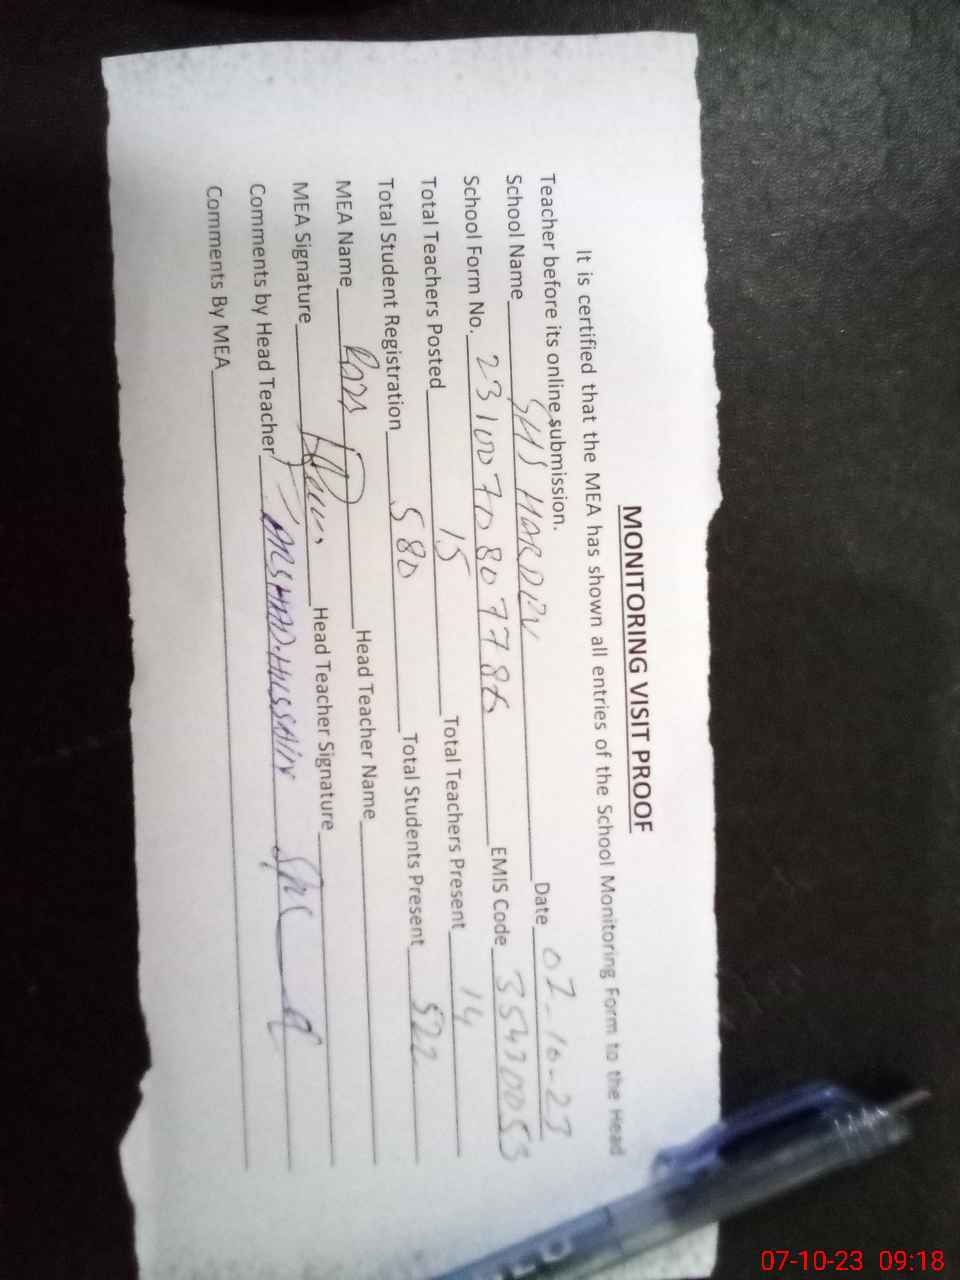 MONITORING VISIT PROOF
It is certified that the MEA has shown all entries of the School Monitoring Form to the Head
Teacher before its online submission.
School Name GHS HARDEV Date 07-10-23
School Form No. EMIS Code 35430053
Total Teachers Posted 15 Total Teachers Present 14
Total Student Registration 580 Total Students Present 522
MEA Name Head Teacher Name
MEA Signature Head Teacher Signature
Comments by Head Teacher ARSHAD HUSSAIN
Comments By MEA
07-10-23 09:18